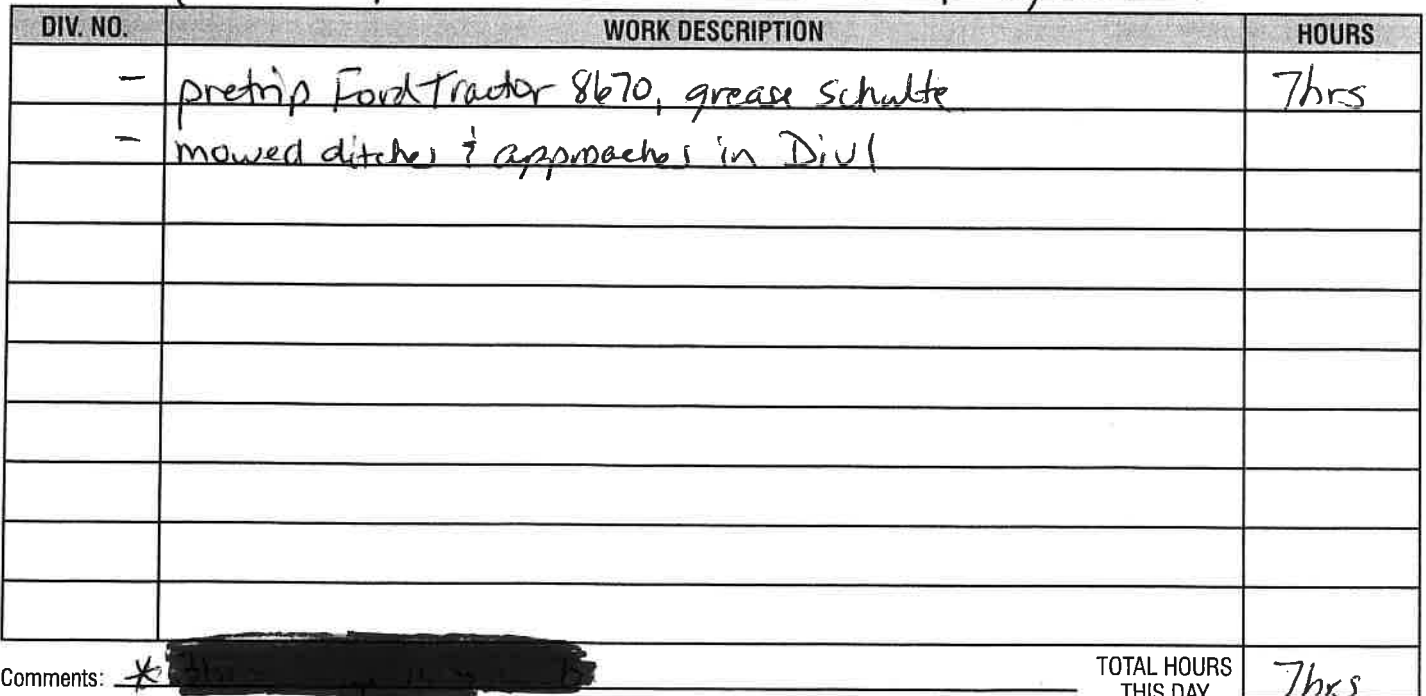 DIV. NO. WORK DESCRIPTION HOURS
- pretrip Ford Tractor 8670, grease schulte 7hrs
- mowed ditches & approaches in Div1
Comments: * TOTAL HOURS THIS DAY 7hrs